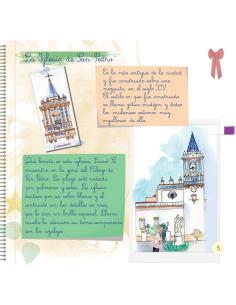 La Iglesia de San Pedro
Es la más antigua de la ciudad
y fue construida sobre una
mezquita, en el siglo XV.
El estilo en que fue construida
se llama gótico mudéjar, y todos
los onubenses estamos muy
orgullosos de ella.
¡Qué bonita es esta iglesia,
encuentra en la zona del Cabezo de
San Pedro. La plaza está rodeada
por palmeras y setos. La iglesia
destaca por su color blanco y el
contraste con los detalles en rosa,
que le dan un brillo especial. Llama
mucho la atención su torre campanario
con los azulejos.
5